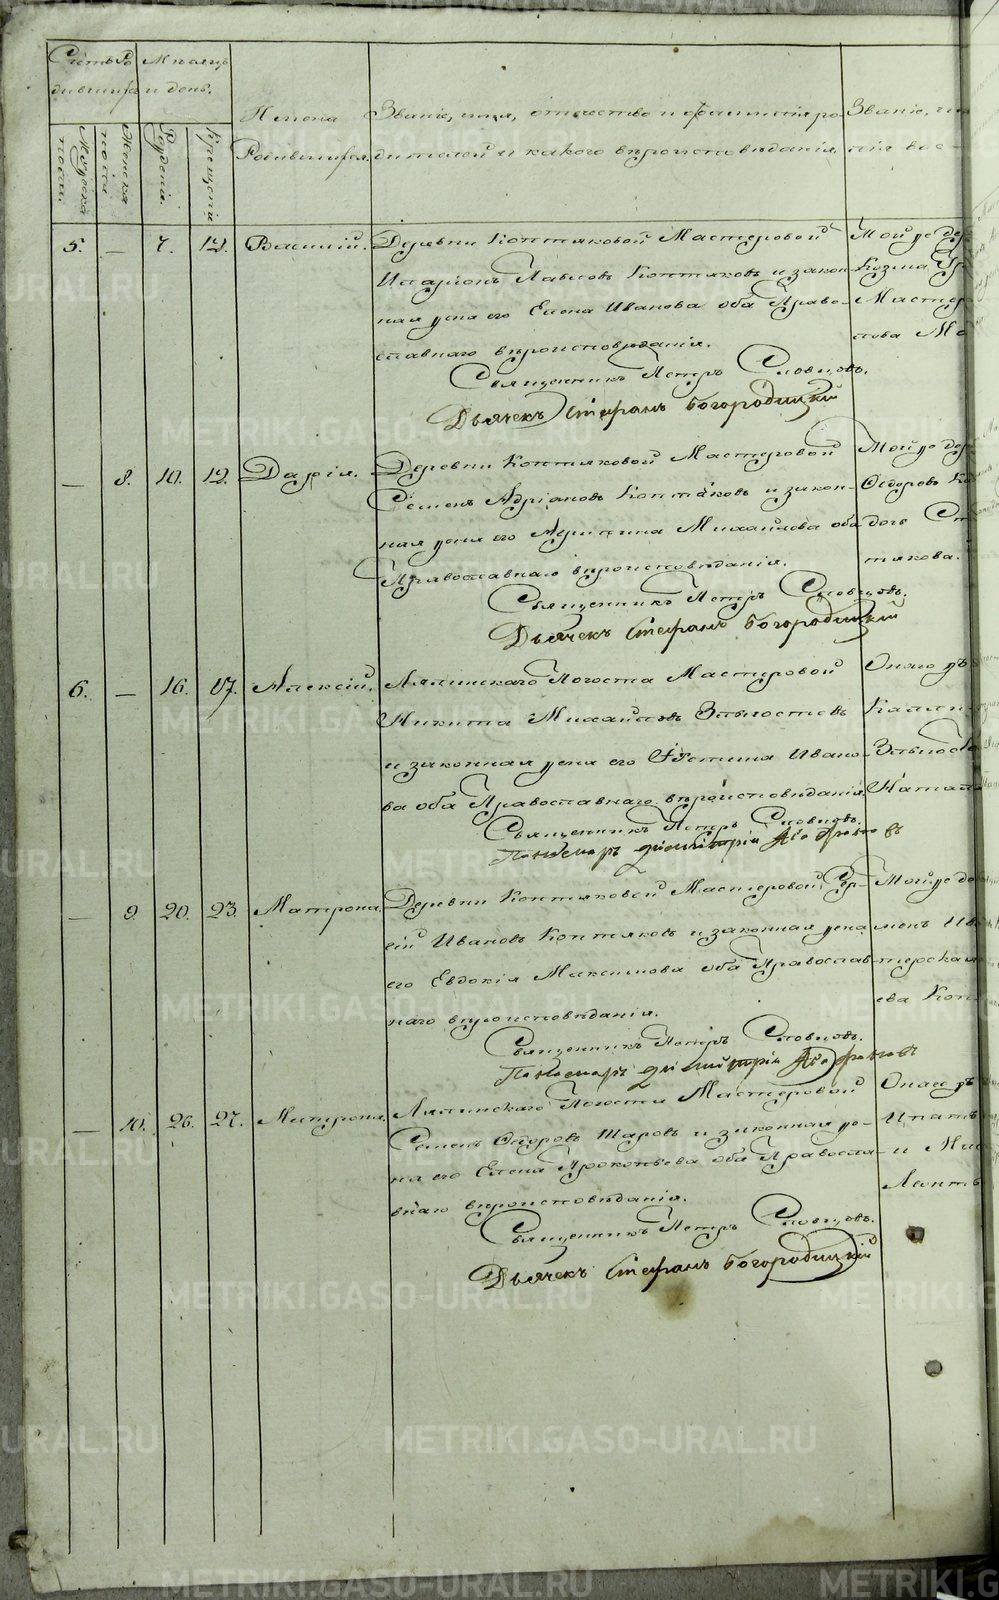 Счетъ Ро
дившихся
Мѣсяцъ
и день.
Имена
Родившихся.
Званіе, имя, отчество и фамилія ро-
дителей и какого вѣроисповѣданія.
Званіе, им
Мужеска
пола.
Женска
пола
Рожденія.
Крещенія
5. — 7. 12. Василій. Деревни Коптяковой Мастеровой
Иларіонъ Павловъ Коптяковъ и закон-
ная жена его Елена Иванова оба Право-
славнаго вѣроисповѣданія.
Мой же дер
Козма
Мастер
Священникъ Петръ Словцовъ.
Дьячекъ Стефанъ Богородицкій
— 8. 10. 12. Дарія. Деревни Коптяковой Мастеровой
Семенъ Адріановъ Коптяковъ и закон-
ная жена его Михайлова оба
Православнаго вѣроисповѣданія.
Мой же дер
Ѳедоровъ Ко
дочь Ст
тякова.
Священникъ Петръ Словцовъ.
Дьячекъ Стефанъ Богородицкій
6. — 16. 17. Алексій. Лялинскаго Погоста Мастеровой
Никита Михайловъ Злыгостевъ
и законная жена его Устина Ивано-
ва оба Православнаго вѣроисповѣданія.
Онаго
Злыгост
Натал
Священникъ Петръ Словцовъ.
Пономарь Димитрій
— 9. 20. 23. Матрона. Деревни Коптяковой Мастеровой Сер-
гій Ивановъ Коптяковъ и законная жена
его Евдокія Максимова оба Православ-
наго вѣроисповѣданія.
Мой же де
менъ Ив
терская
ева Коп
Священникъ Петръ Словцовъ.
Пономарь Димитрій
— 10. 26. 27. Матрона. Лялинскаго Погоста Мастеровой
Семенъ Ѳедоровъ Шаровъ и законная же-
на его Елена Прокопьева оба Правосла-
внаго вѣроисповѣданія.
Онаго
Ипатъ
и Ма
Леонть
Священникъ Петръ Словцовъ.
Дьячекъ Стефанъ Богородицкій
METRIKI.GASO-URAL.RU